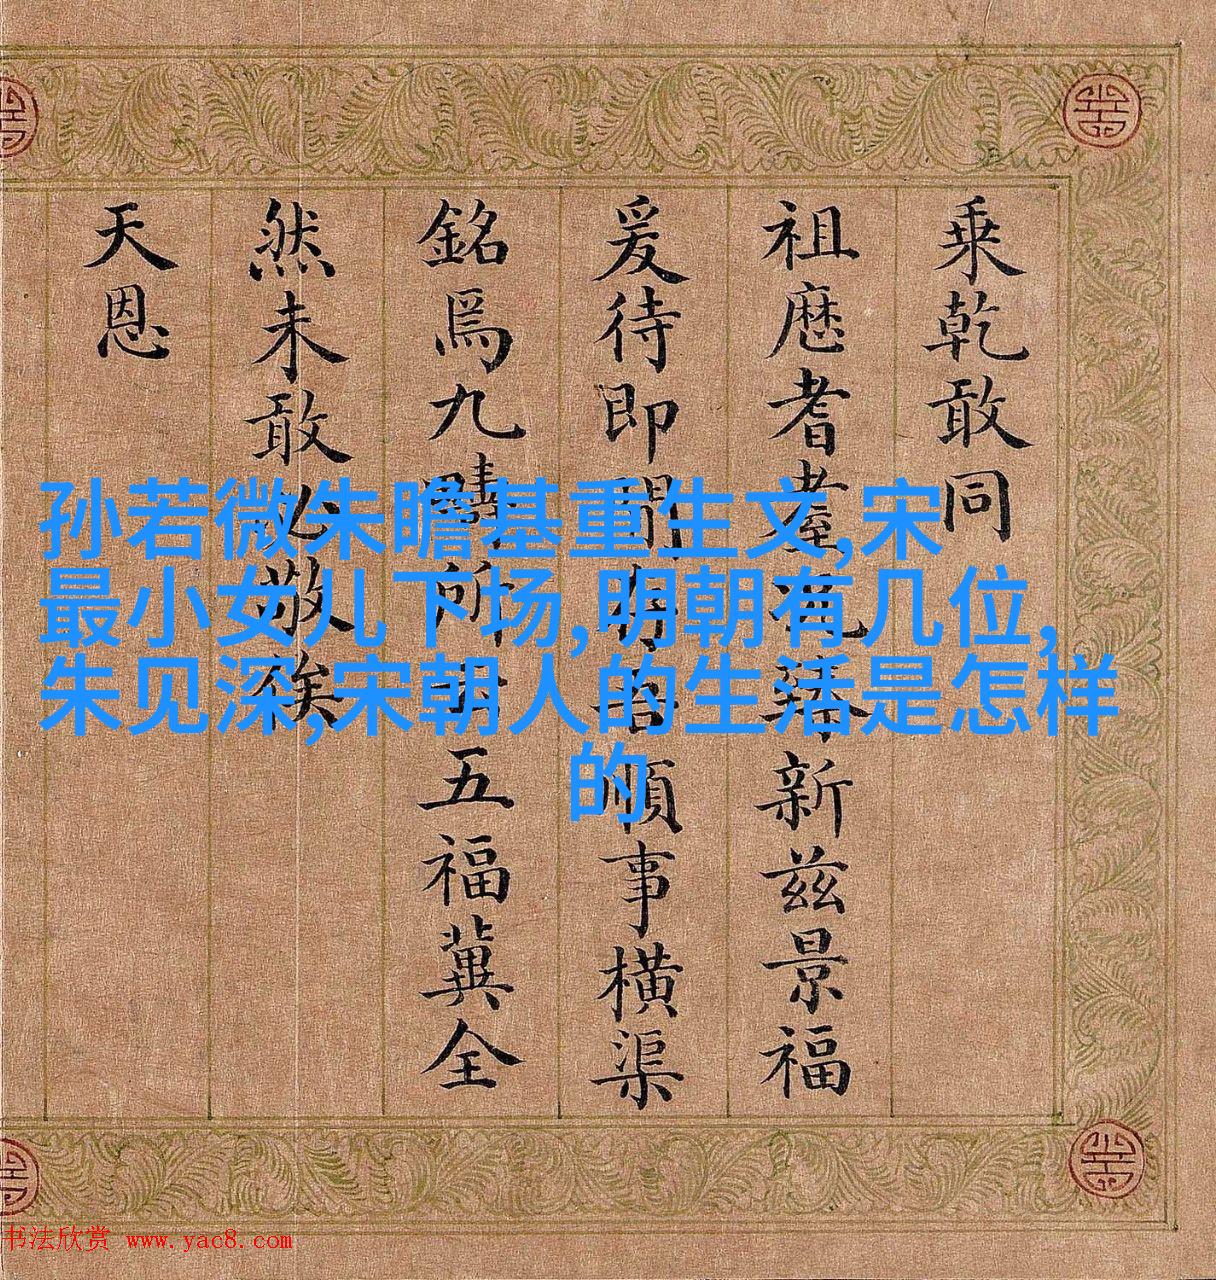 乗乾敢同
祖歴耆耋新兹景福
爰待即間存吾順事橫渠
銘爲九疇所五福冀全
然未敢必敬俟
天恩
孙若微朱瞻基重生文,宋
最小女儿下场,明朝有几位,
朱见深,宋朝人的生活是怎样
的
书法欣赏 www.yac8.com